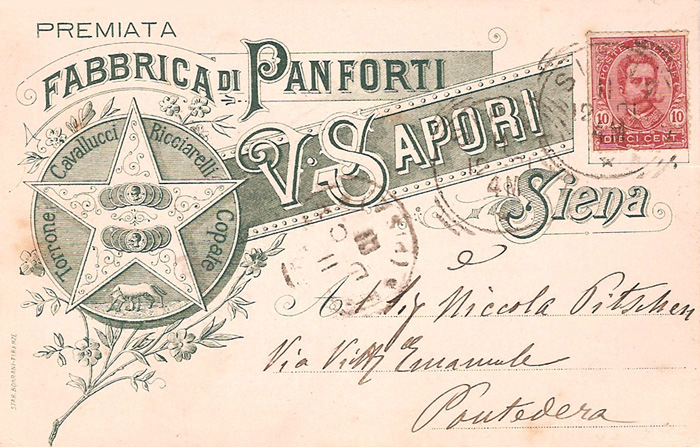 PREMIATA
FABBRICA DI PANFORTI
V. SAPORI
Siena
Torrone
Cavallucci
Ricciarelli
Copate
POSTE ITALIANE
10 10
DIECI CENT.
SIENA
4M
Al Sig Niccola
Via Vitt Emanuele
Pontedera